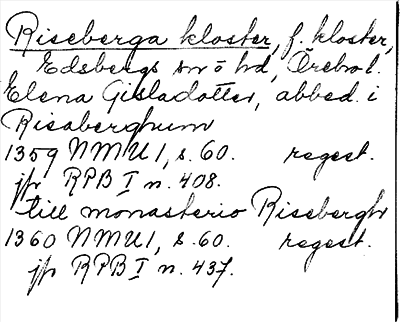 Riseberga kloster, f. kloster,
Edsbergs sn o hd, Örebro l.
Elena Gisladotter, abbed. i
Risaberghum
1359 NMU 1, s. 60. regest.
jfr RPB I n. 408.
till monasterio Risebergh
1360 NMU 1, s. 60. regest.
jfr RPB I n. 437.